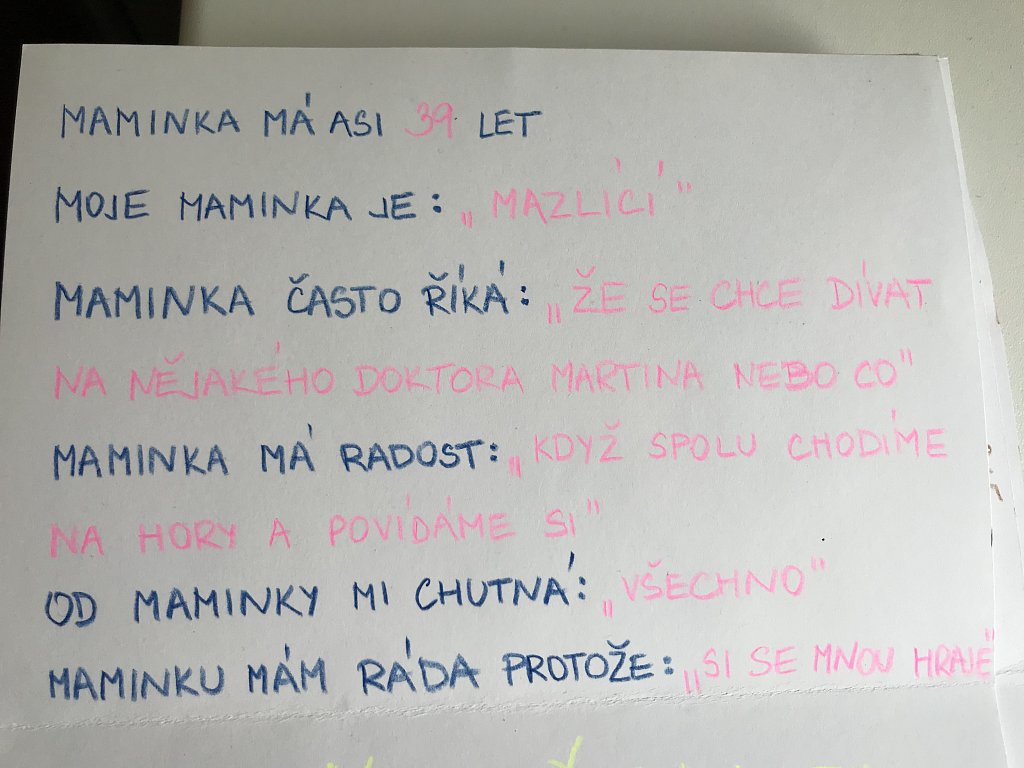 MAMINKA MÁ ASI 39 LET
MOJE MAMINKA JE: „MAZLÍCÍ"
MAMINKA ČASTO ŘÍKÁ: „ŽE SE CHCE DÍVAT
NA NĚJAKÉHO DOKTORA MARTINA NEBO CO"
MAMINKA MÁ RADOST: „KDYŽ SPOLU CHODÍME
NA HORY A POVÍDÁME SI"
OD MAMINKY MI CHUTNÁ: „VŠECHNO"
MAMINKU MÁM RÁDA PROTOŽE: „SI SE MNOU HRAJE"